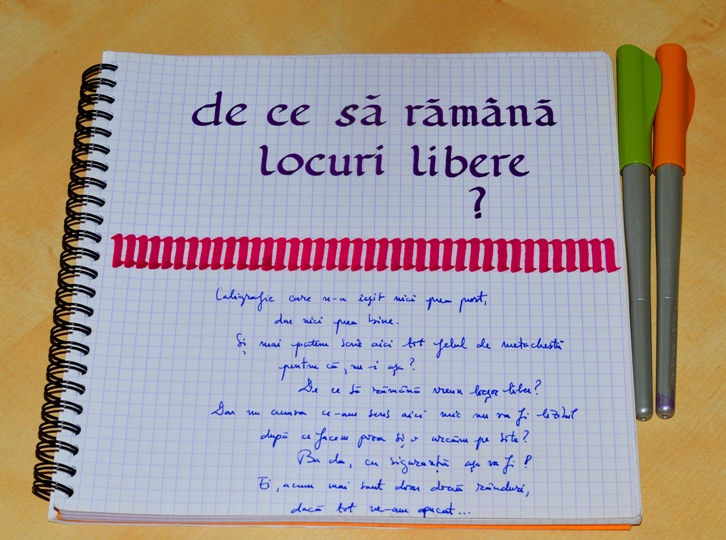 de ce să rămână
locuri libere
?
Caligrafie care n-a ieșit nici prea prost,
dar nici prea bine.
Și mai putem scrie aici tot felul de metachestii
pentru că, nu-i așa?
De ce să rămână vreun locșor liber?
Dar nu cumva ce-am scris aici mic nu va fi lizibil
după ce facem poza și o urcăm pe site?
Ba da, cu siguranță așa va fi!
Ei, acum mai sunt doar două rânduri,
dacă tot ne-am apucat...